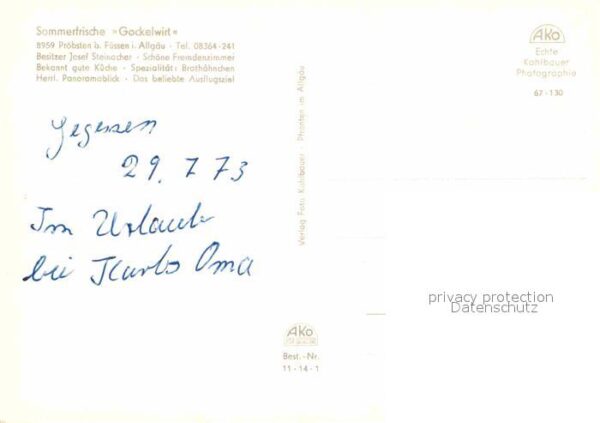 Sommerfrische »Gockelwirt«
8959 Pröbsten b. Füssen i. Allgäu · Tel. 08364-241
Besitzer Josef Steinacher · Schöne Fremdenzimmer
Bekannt gute Küche · Spezialität: Brathähnchen
Herrl. Panoramablick · Das beliebte Ausflugsziel
Gegessen
29. 7 73
Im Urlaub
bei Karlos Oma
Verlag Foto Kahlbauer · Pfronten im Allgäu
AKO
Echte
Kahlbauer
Photographie
67-130
AKO
Best.-Nr.
11-14-1
privacy protection
Datenschutz